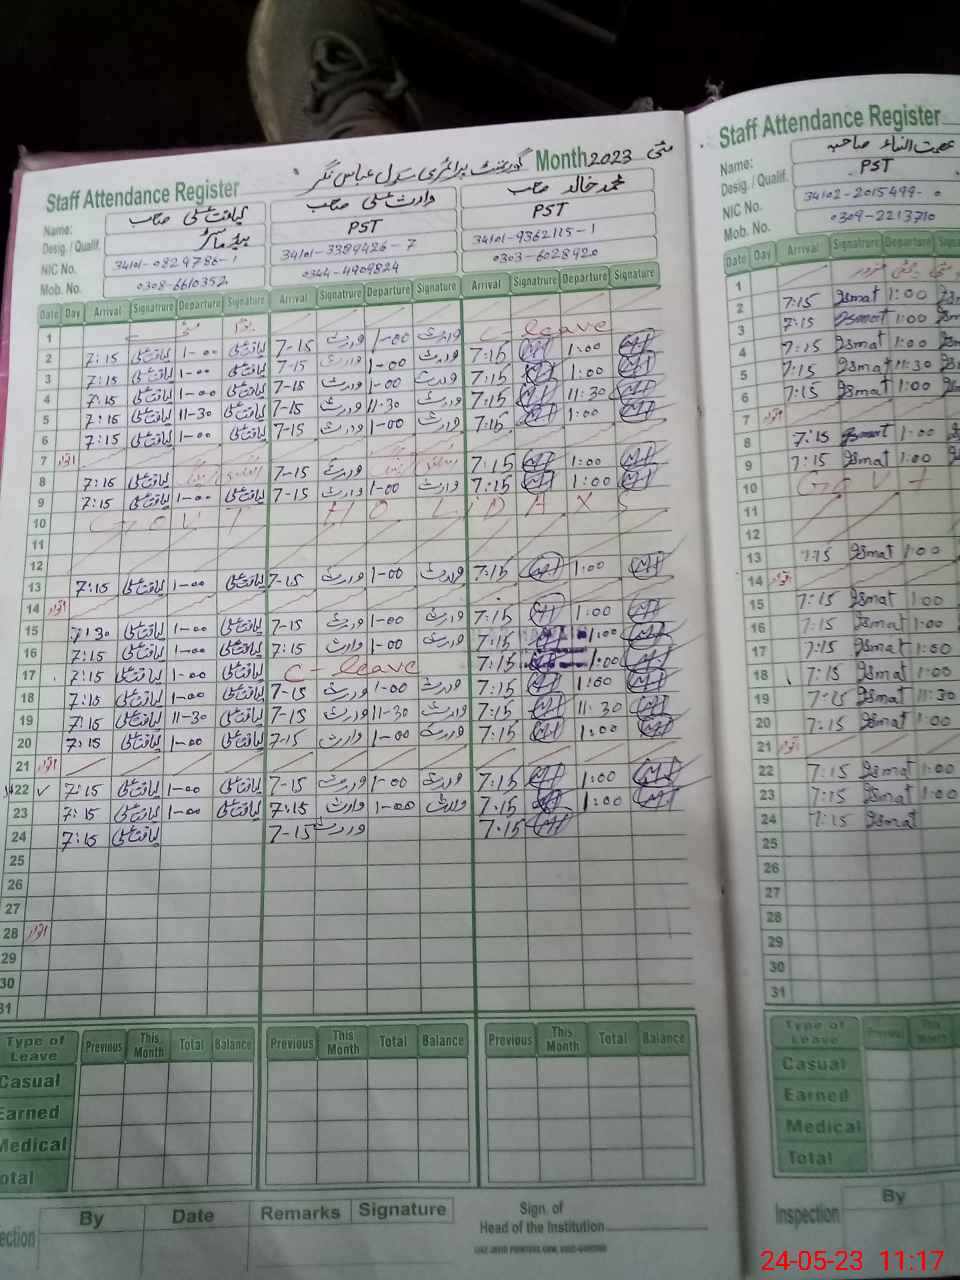 Staff Attendance Register گورنمنٹ پرائمری سکول عباس نگر Month 2023 مئی
Name: لیاقت علی صاحب وارث علی صاحب محمد خالد صاحب
Desig. / Qualif. ہیڈ ماسٹر PST PST
NIC No. 34101-0829786-1 34101-3389426-7 34101-9362115-1
Mob. No. 0308-6610352 0344-4909824 0303-6028920
Date Day Arrival Signatrure Departure Signatrure Arrival Signatrure Departure Signatrure Arrival Signatrure Departure Signatrure
1
2 7:15 لیاقت علی 1-00 لیاقت علی 7-15 وارث 1-00 وارث C-leave
3 7:15 لیاقت علی 1-00 لیاقت علی 7-15 وارث 1-00 وارث 7:15 1:00
4 7:15 لیاقت علی 1-00 لیاقت علی 7-15 وارث 1-00 وارث 7:15 1:00
5 7:15 لیاقت علی 11-30 لیاقت علی 7-15 وارث 11-30 وارث 7:15 11:30
6 7:15 لیاقت علی 1-00 لیاقت علی 7-15 وارث 1-00 وارث 7:15 1:00
7 اتوار
8 7:15 لیاقت علی 7-15 وارث 7:15 1:00
9 7:15 لیاقت علی 1-00 لیاقت علی 7-15 وارث 1-00 وارث 7:15 1:00
10 GOVT HOLIDAYS
11
12
13 7:15 لیاقت علی 1-00 لیاقت علی 7-15 وارث 1-00 وارث 7:15 1:00
14 اتوار
15 7:30 لیاقت علی 1-00 لیاقت علی 7-15 وارث 1-00 وارث 7:15 1:00
16 7:15 لیاقت علی 1-00 لیاقت علی 7:15 وارث 1-00 وارث 7:15 1:00
17 7:15 لیاقت علی 1-00 لیاقت علی C-leave 7:15 1:00
18 7:15 لیاقت علی 1-00 لیاقت علی 7-15 وارث 1-00 وارث 7:15 1:00
19 7:15 لیاقت علی 11-30 لیاقت علی 7-15 وارث 11-30 وارث 7:15 11:30
20 7:15 لیاقت علی 1-00 لیاقت علی 7-15 وارث 1-00 وارث 7:15 1:00
21 اتوار
22 7:15 لیاقت علی 1-00 لیاقت علی 7-15 وارث 1-00 وارث 7:15 1:00
23 7:15 لیاقت علی 1-00 لیاقت علی 7:15 وارث 1-00 وارث 7:15 1:00
24 7:15 لیاقت علی 7-15 وارث 7:15
25
26
27
28 اتوار
29
30
31
Type of Leave Previous This Month Total Balance Previous This Month Total Balance Previous This Month Total Balance
Casual
Earned
Medical
otal
ection By Date Remarks Signature
Sign. of
Head of the Institution
Staff Attendance Register
Name: عصمت النساء صاحبہ
Desig. / Qualif. PST
NIC No. 34102-2015499-0
Mob. No. 0309-2213710
Date Day Arrival Signatrure Departure
1
2 7:15 Ismat 1:00
3 7:15 Ismat 1:00
4 7:15 Ismat 1:00
5 7:15 Ismat 11:30
6 7:15 Ismat 1:00
7 اتوار
8 7:15 Ismat 1:00
9 7:15 Ismat 1:00
10 Govt
11
12
13 7:15 Ismat 1:00
14 اتوار
15 7:15 Ismat 1:00
16 7:15 Ismat 1:00
17 7:15 Ismat 1:00
18 7:15 Ismat 1:00
19 7:15 Ismat 11:30
20 7:15 Ismat 1:00
21 اتوار
22 7:15 Ismat 1:00
23 7:15 Ismat 1:00
24 7:15 Ismat
25
26
27
28
29
30
31
Type of Leave Previous This
Casual
Earned
Medical
Total
Inspection By
24-05-23 11:17